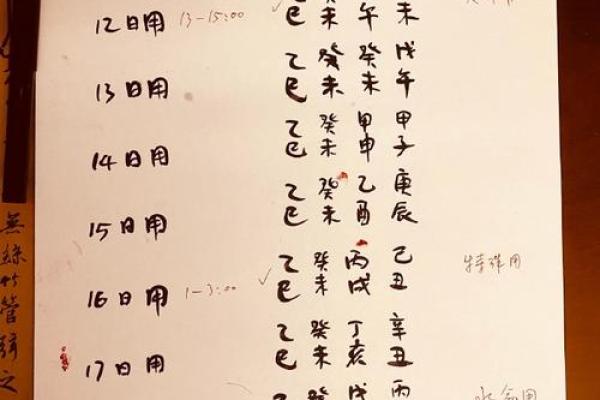 12日用 13-15:00
巳 未 午 未
乙 癸 癸 戊
13日用
巳 未 未 午
乙 癸 甲 甲
14日用
巳 未 申 子
乙 癸 乙 庚
15日用
巳 未 酉 辰
乙 癸 丙 己 特殊用
16日用 1-3:00
巳 未 戌 丑
乙 癸 丁 辛
17日用
巳 未 亥 丑
癸 戊 丙
無絲竹管之